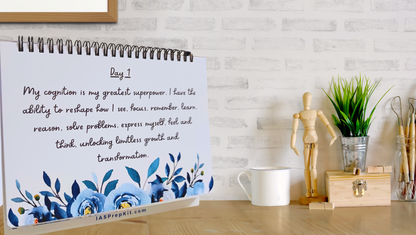 Day 1
My cognition is my greatest superpower. I have the
ability to reshape how I see, focus, remember, learn,
reason, solve problems, express myself, feel and
think, unlocking limitless growth and
transformation.
IASPrepKit.com